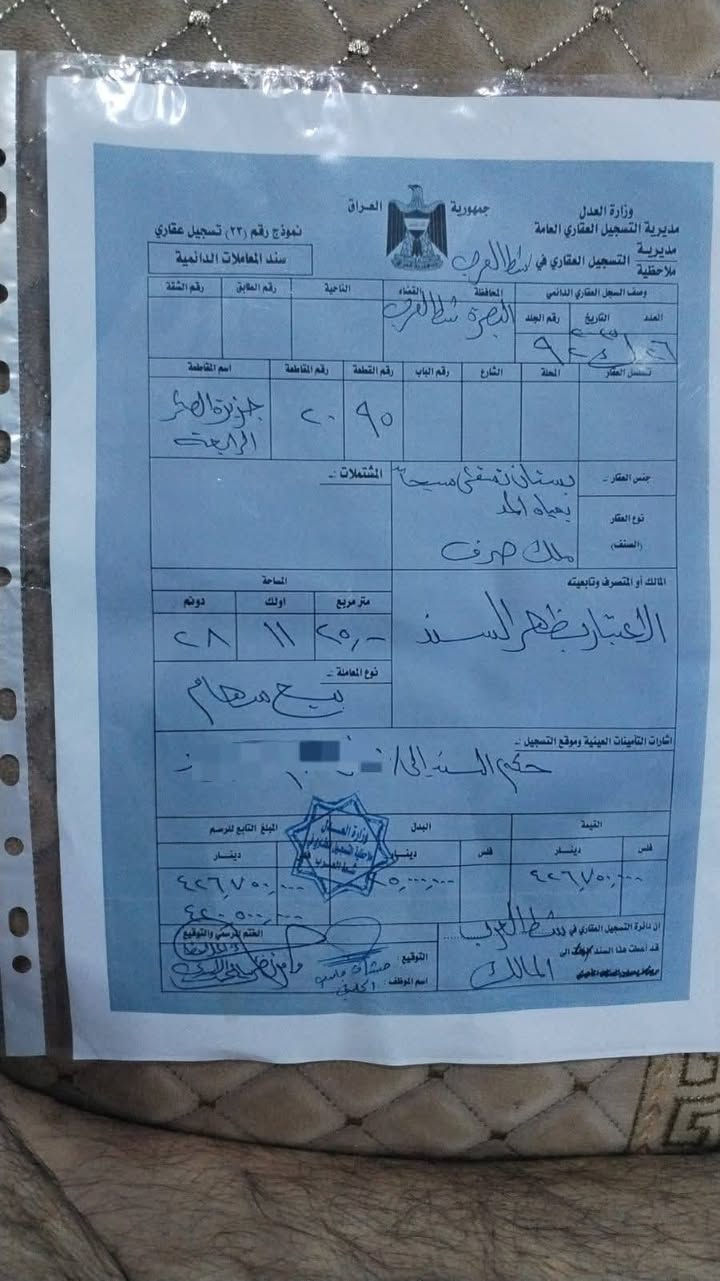 وزارة العدل
مديرية التسجيل العقاري العامة
جمهورية العراق
مديرية
ملاحظية
التسجيل العقاري في شط العرب
نموذج رقم (٢٣) تسجيل عقاري
سند المعاملات الدائمية
وصف السجل العقاري الدائمي
المحافظة
القضاء
الناحية
رقم الطابق
رقم الشقة
العدد
التاريخ
رقم الجلد
البصرة
شط العرب
تسلسل العقار
المحلة
الشارع
رقم الباب
رقم القطعة
رقم المقاطعة
اسم المقاطعة
٩٥
٢٠
جزيرة
الرابعة
جنس العقار :ـ
نوع العقار
(الصنف)
بستان تسقى سيحاً
بمياه المد
ملك صرف
المشتملات :ـ
المالك أو المتصرف وتابعيته
الاعتبار بظهر السند
المساحة
متر مربع
اولك
دونم
٢٥,٠٠
١١
٢٨
نوع المعاملة :ـ
بيع سهام
اشارات التأمينات العينية وموقع التسجيل :ـ
حكم السند إلى/
القيمة
البدل
المبلغ التابع للرسم
فلس
دينار
فلس
دينار
فلس
دينار
٤٢٦,٧٥٠,٠٠٠
٤٢٦,٧٥٠,٠٠٠
٤٢٠,٥٠٠,٠٠٠
وزارة العدل
شط العرب
ان دائرة التسجيل العقاري في شط العرب
قد أعطت هذا السند إلى
المالك
التوقيع :
اسم الموظف :
الختم الرسمي والتوقيع